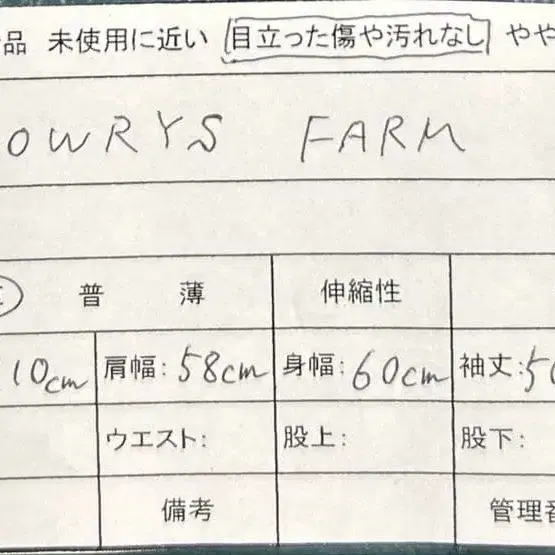 品 未使用に近い 目立った傷や汚れなし やや
OWRYS FARM
普 薄 伸縮性
10cm 肩幅: 58cm 身幅: 60cm 袖丈: 5
ウエスト: 股上: 股下:
備考 管理